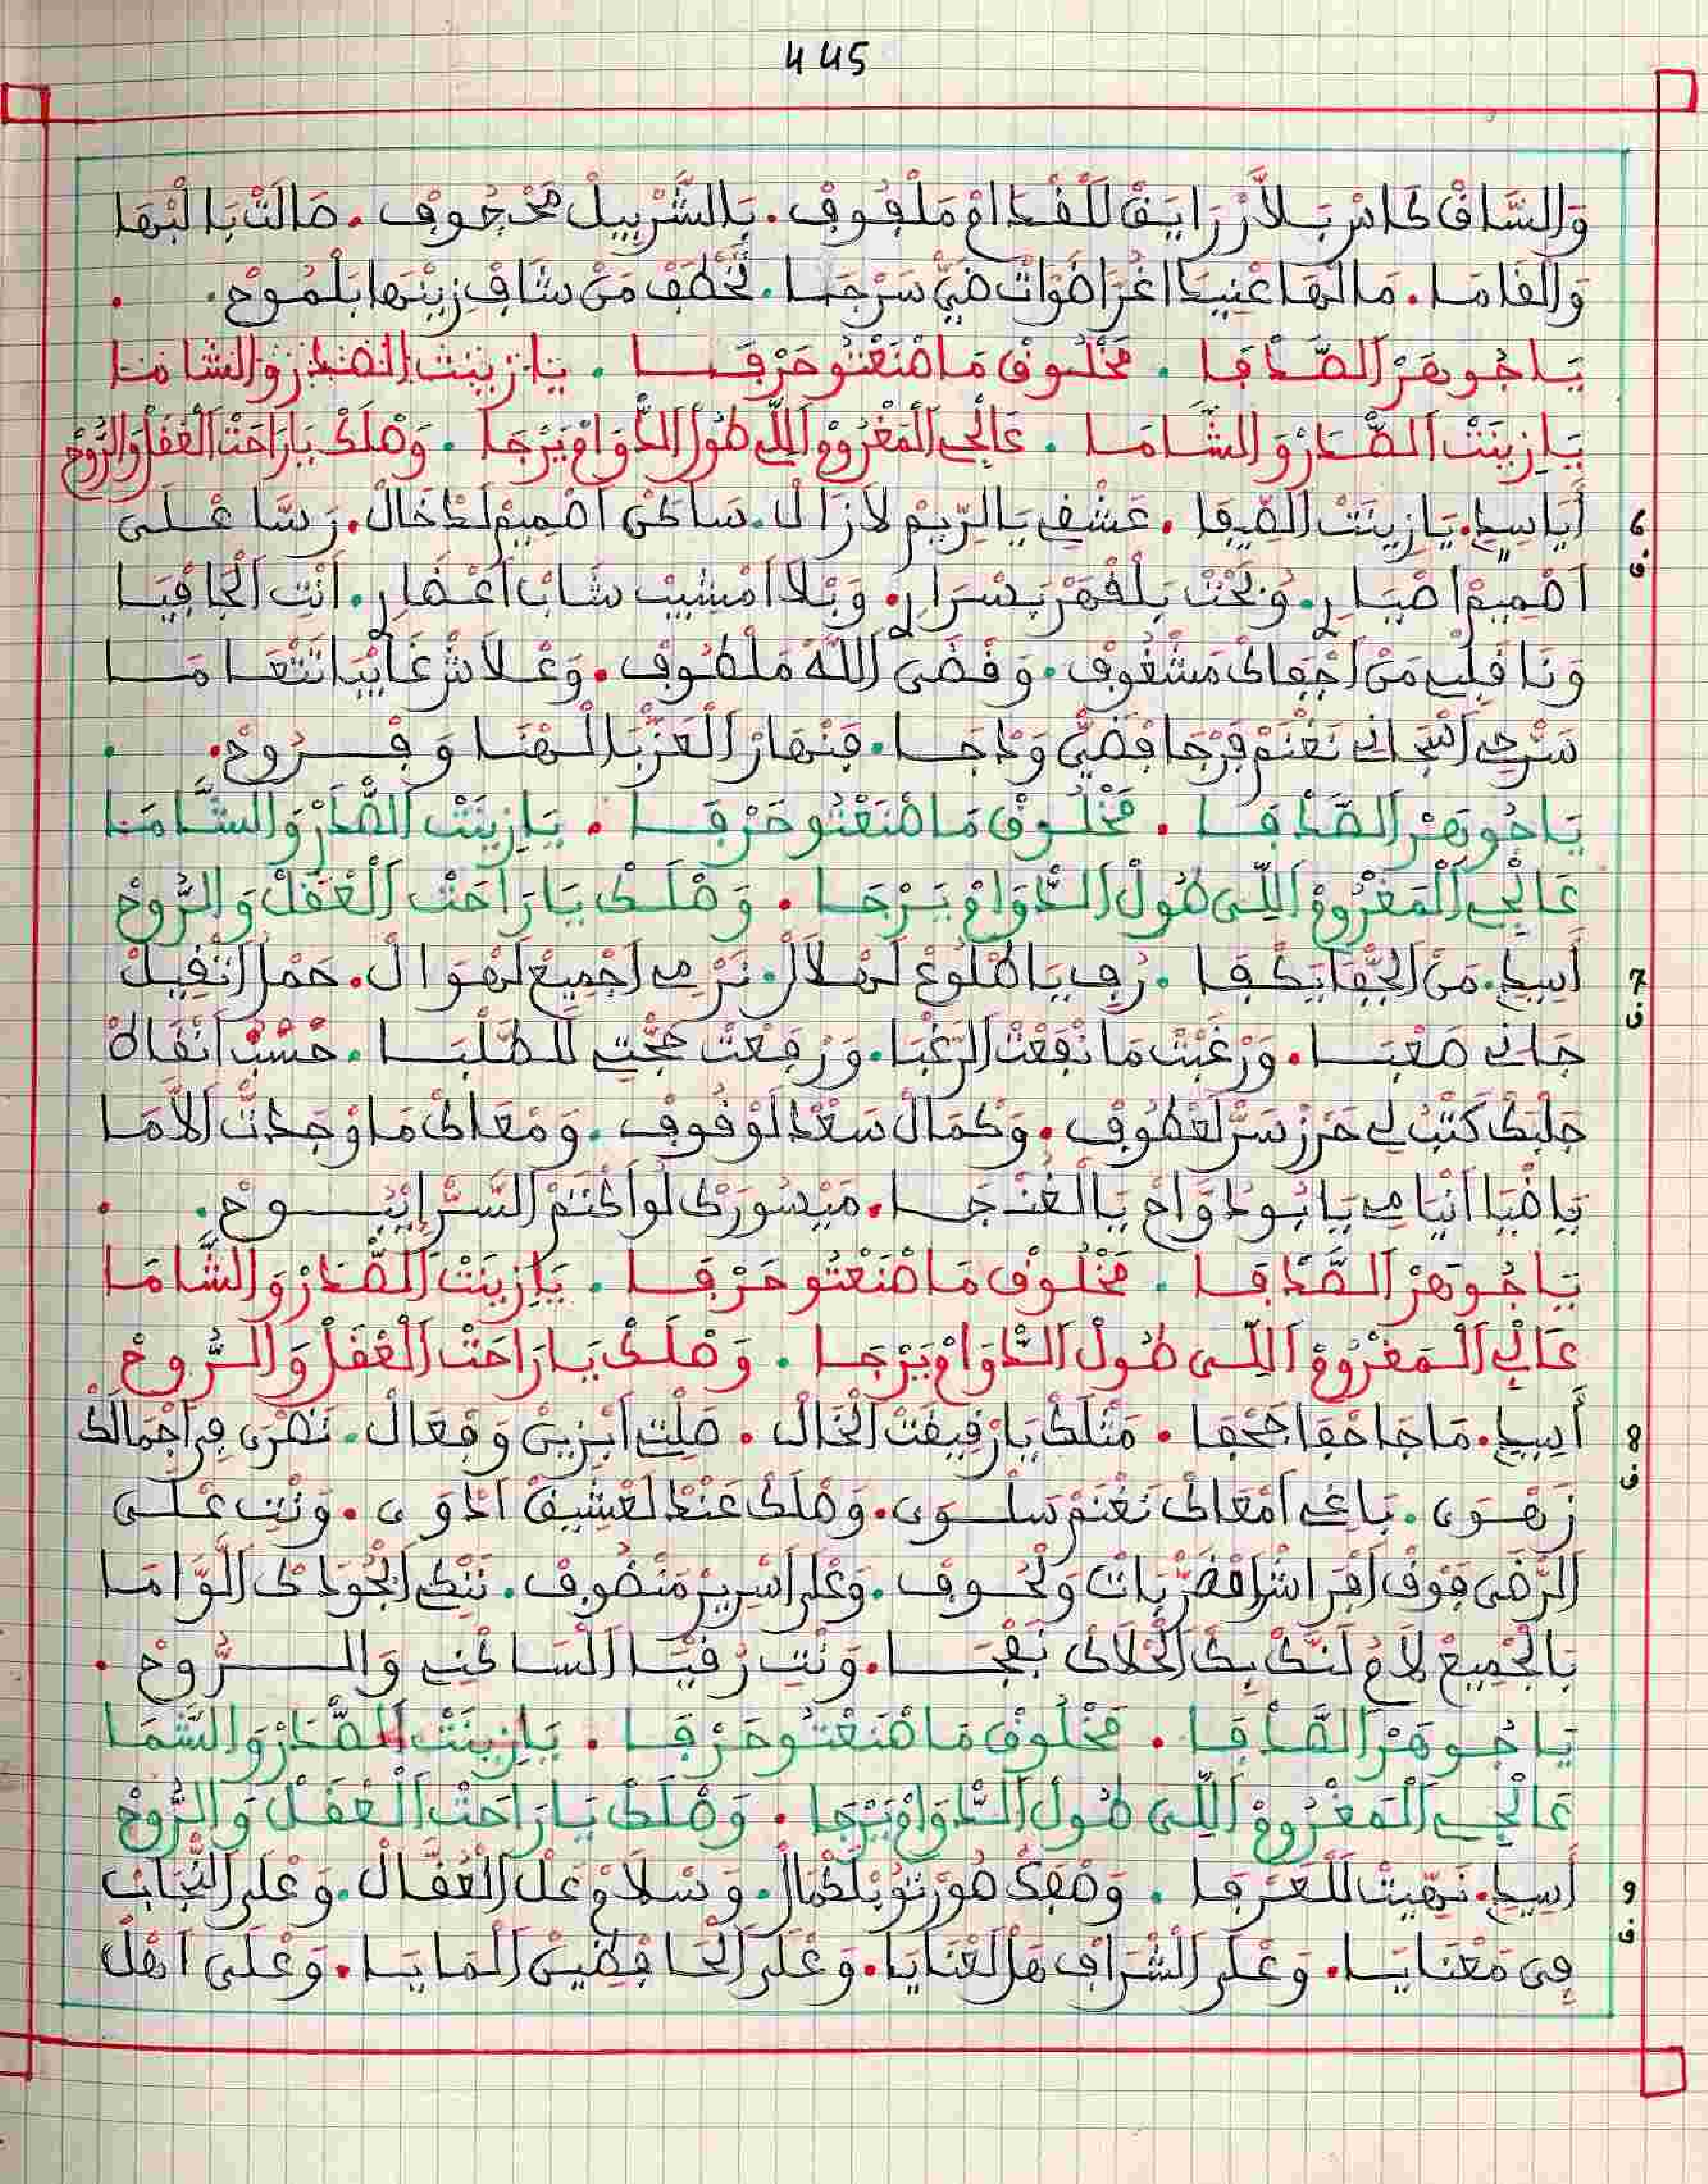 445
وَالسَّاقْ كَاسْ بَلاَّرْ رَايَقْ لَلْقْدَامْ مَلْفُوفْ. بَالشَّرْبِيلْ مَحْجُوفْ. صَالَتْ بَالْبْهَا
وَالْقَامَا. مَالْهَا عْنِيَا اغْرَاضْوَاتْ ضَيّْ سَرْجَا. تَخْطَفْ مَنْ شَافْ زِينْهَا بَلْمُوحْ.
يَا جُوهَرْ الصَّدْفَا. مَخْلُوقْ مَا صْنَعْتُو حَرْفَا. يَا زِينَتْ الصْدَرْ وَالشَّامَا
يَا زِينَتْ الصّْدَرْ وَالشَّامَا. عَالْجِي الْمَغْرُومْ اللِّي طُولْ الدّْوَامْ يَرْجَا. وَصْلَكْ يَا رَاحَتْ الْعْقَلْ وَالرُّوحْ
6 أَيَاسِيدِي. يَا زِينَتْ الصِّيفَا. عَشْقِي يَا الرِّيمْ لاَزَالْ. سَاكَنْ اصْمِيمْ لَدْخَالْ. رَسَّا عْلَى
ف اصْمِيمْ اصْبَارِي. وَنْحَتْ بَلْقْهَرْ بَسْرَارِي. وَبْلاَ امْشِيبْ شَابْ اعْضَارِي. انْتِ الْجَافْيَا
وَنَا قَلْبِي مَنْ اجْفَاكْ مَشْغُوفْ. وَقْضَى اللَّهْ مَلْطُوفْ. وَعْلاَشْ غَايْبَا نَتْعَامَا
سَرْحِي اشْجَانِي نَغْنَمْ فَرْجَا فْضَيّْ وَدْجَا. فَنْهَارْ الْعَزّْ بَالْهْنَا وَفْرُوحْ.
يَا جُوهَرْ الصَّدْفَا. مَخْلُوقْ مَا صْنَعْتُو حَرْفَا. يَا زِينَتْ الصّْدَرْ وَالشَّامَا
عَالْجِي الْمَغْرُومْ اللِّي طُولْ الدّْوَامْ يَرْجَا. وَصْلَكْ يَا رَاحَتْ الْعْقَلْ وَالرُّوحْ
7 أَسِيدِي. مَنْ الجّْفَا يَكْفَا. رُفِي يَا طْلُوعْ لَهْلاَلْ. نَرْمِي اجْمِيعْ لَهْوَالْ. حَمْلْ اثْقِيلْ
ف جَانِي صَعْبَا. وَرْغَبْتْ مَا نَفْعَتْ الرَّغْبَا. وَرْفَعْتْ حُجّْتِي لَلطَّلْبَا. حْسْبْ انْفَادْ
جَلْبَكْ كَتْبْ لِي حَرْزْ سَرّْ لَعْطُوفْ. وَكْمَالْ سَعْدْ لَوْقُوفْ. وَمْعَاكْ مَا وْجَدْتْ الاَّمَا
يَا ضْيَا انْيَامِي يَا بُودْوَاحْ يَا الْغُنْجَا. مَيْسُورَكْ لَوْ اكْتَمْ السَّرّْ اِيْبُوحْ.
يَا جُوهَرْ الصَّدْفَا. مَخْلُوقْ مَا صْنَعْتُو حَرْفَا. يَا زِينَتْ الصّْدَرْ وَالشَّامَا
عَالْجِي الْمَغْرُومْ اللِّي طُولْ الدّْوَامْ يَرْجَا. وَصْلَكْ يَا رَاحَتْ الْعْقَلْ وَالرُّوحْ
8 أَسِيدِي. مَا جَا حْفَا جَحْفَا. مَثْلَكْ يَا رْقِيقَتْ الْخَالْ. صَلْتِ ابْزِينْ وَفْعَالْ. نَضْرَى فِي اجْمَالَكْ
ف زَهْوَى. بَاغِي امْعَاكْ نَغْنَمْ سَلْوَى. وَصْلَكْ عَنْدْ لَعْشِيقْ ادْوَى. وَنْتِ عْلَى
الرّْضَى فَوْقْ افْرَاشْ افْضَرْبَاتْ وَلْحُوفْ. وَعْلَى اسْرِيرْ مَنْضُوفْ. نَنْكِي الجُّودَكْ اللَّوَّامَا
بَالْجْمِيعْ لاَمْ لَنَّكْ بِكْ الْخْلاَكْ نَفْجَا. وَنْتِ رُقْيَا السَّاكْنِي وَالرُّوحْ.
يَا جُوهَرْ الصَّدْفَا. مَخْلُوقْ مَا صْنَعْتُو حَرْفَا. يَا زِينَتْ الصّْدَرْ وَالشَّمَا
عَالْجِي الْمَغْرُومْ اللِّي طُولْ الدّْوَامْ يَرْجَا. وَصْلَكْ يَا رَاحَتْ الْعْقَلْ وَالرُّوحْ
9 أَسِيدِي. نَهِّيتْ لَلْعَرْفَا. وَصْفَكْ صُورْتُو بَلْكْمَالْ. وَسْلاَمْ عَلْ الْعُقَّالْ. وَعْلَى النّْجَابْ
ف فِي مَعْنَايَا. وَعْلَى الشّْرَافْ هَلْ لَعْنَايَا. وَعْلَى الْحَافْضِينْ الْمَايَا. وَعْلَى اهْلْ